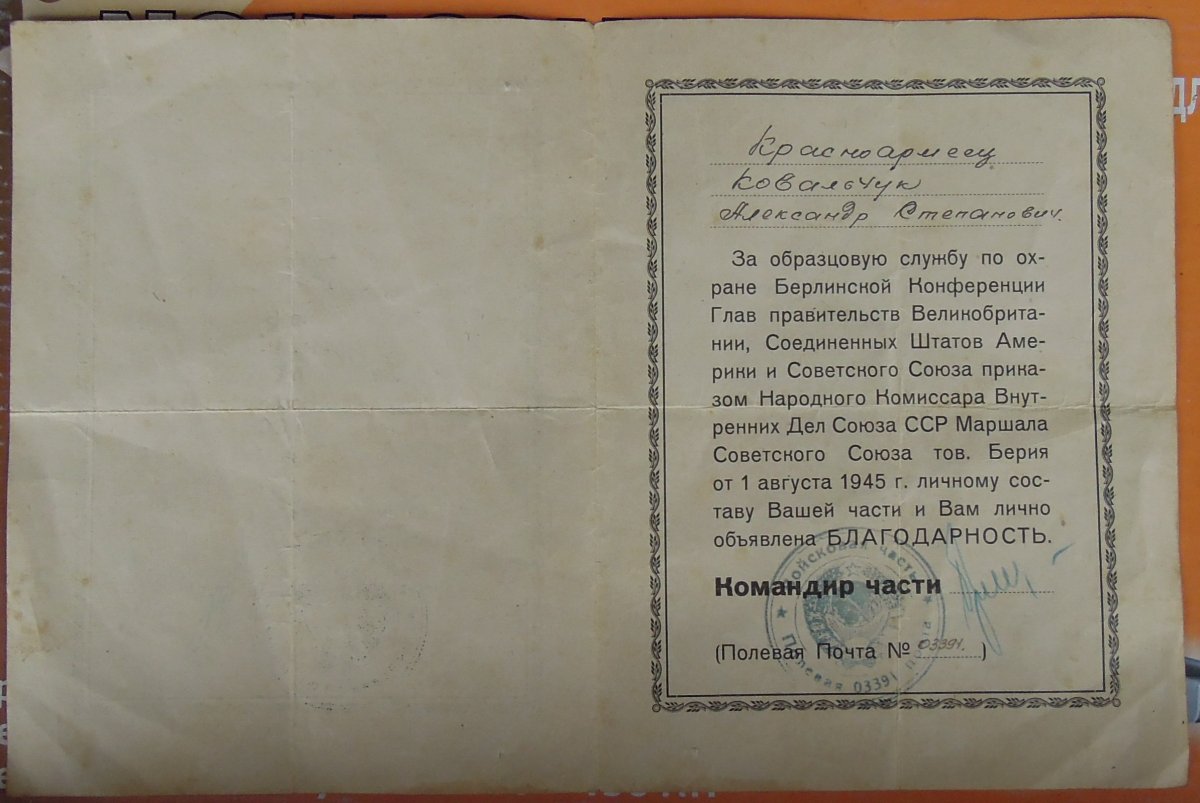 Красноармеец
Ковальчук
Александр Степанович.
За образцовую службу по ох-
ране Берлинской Конференции
Глав правительств Великобрита-
нии, Соединенных Штатов Аме-
рики и Советского Союза прика-
зом Народного Комиссара Внут-
ренних Дел Союза ССР Маршала
Советского Союза тов. Берия
от 1 августа 1945 г. личному сос-
таву Вашей части и Вам лично
объявлена БЛАГОДАРНОСТЬ.
Войсковая часть
Командир части
(Полевая Почта № 03391.)
Полевая почта 03391